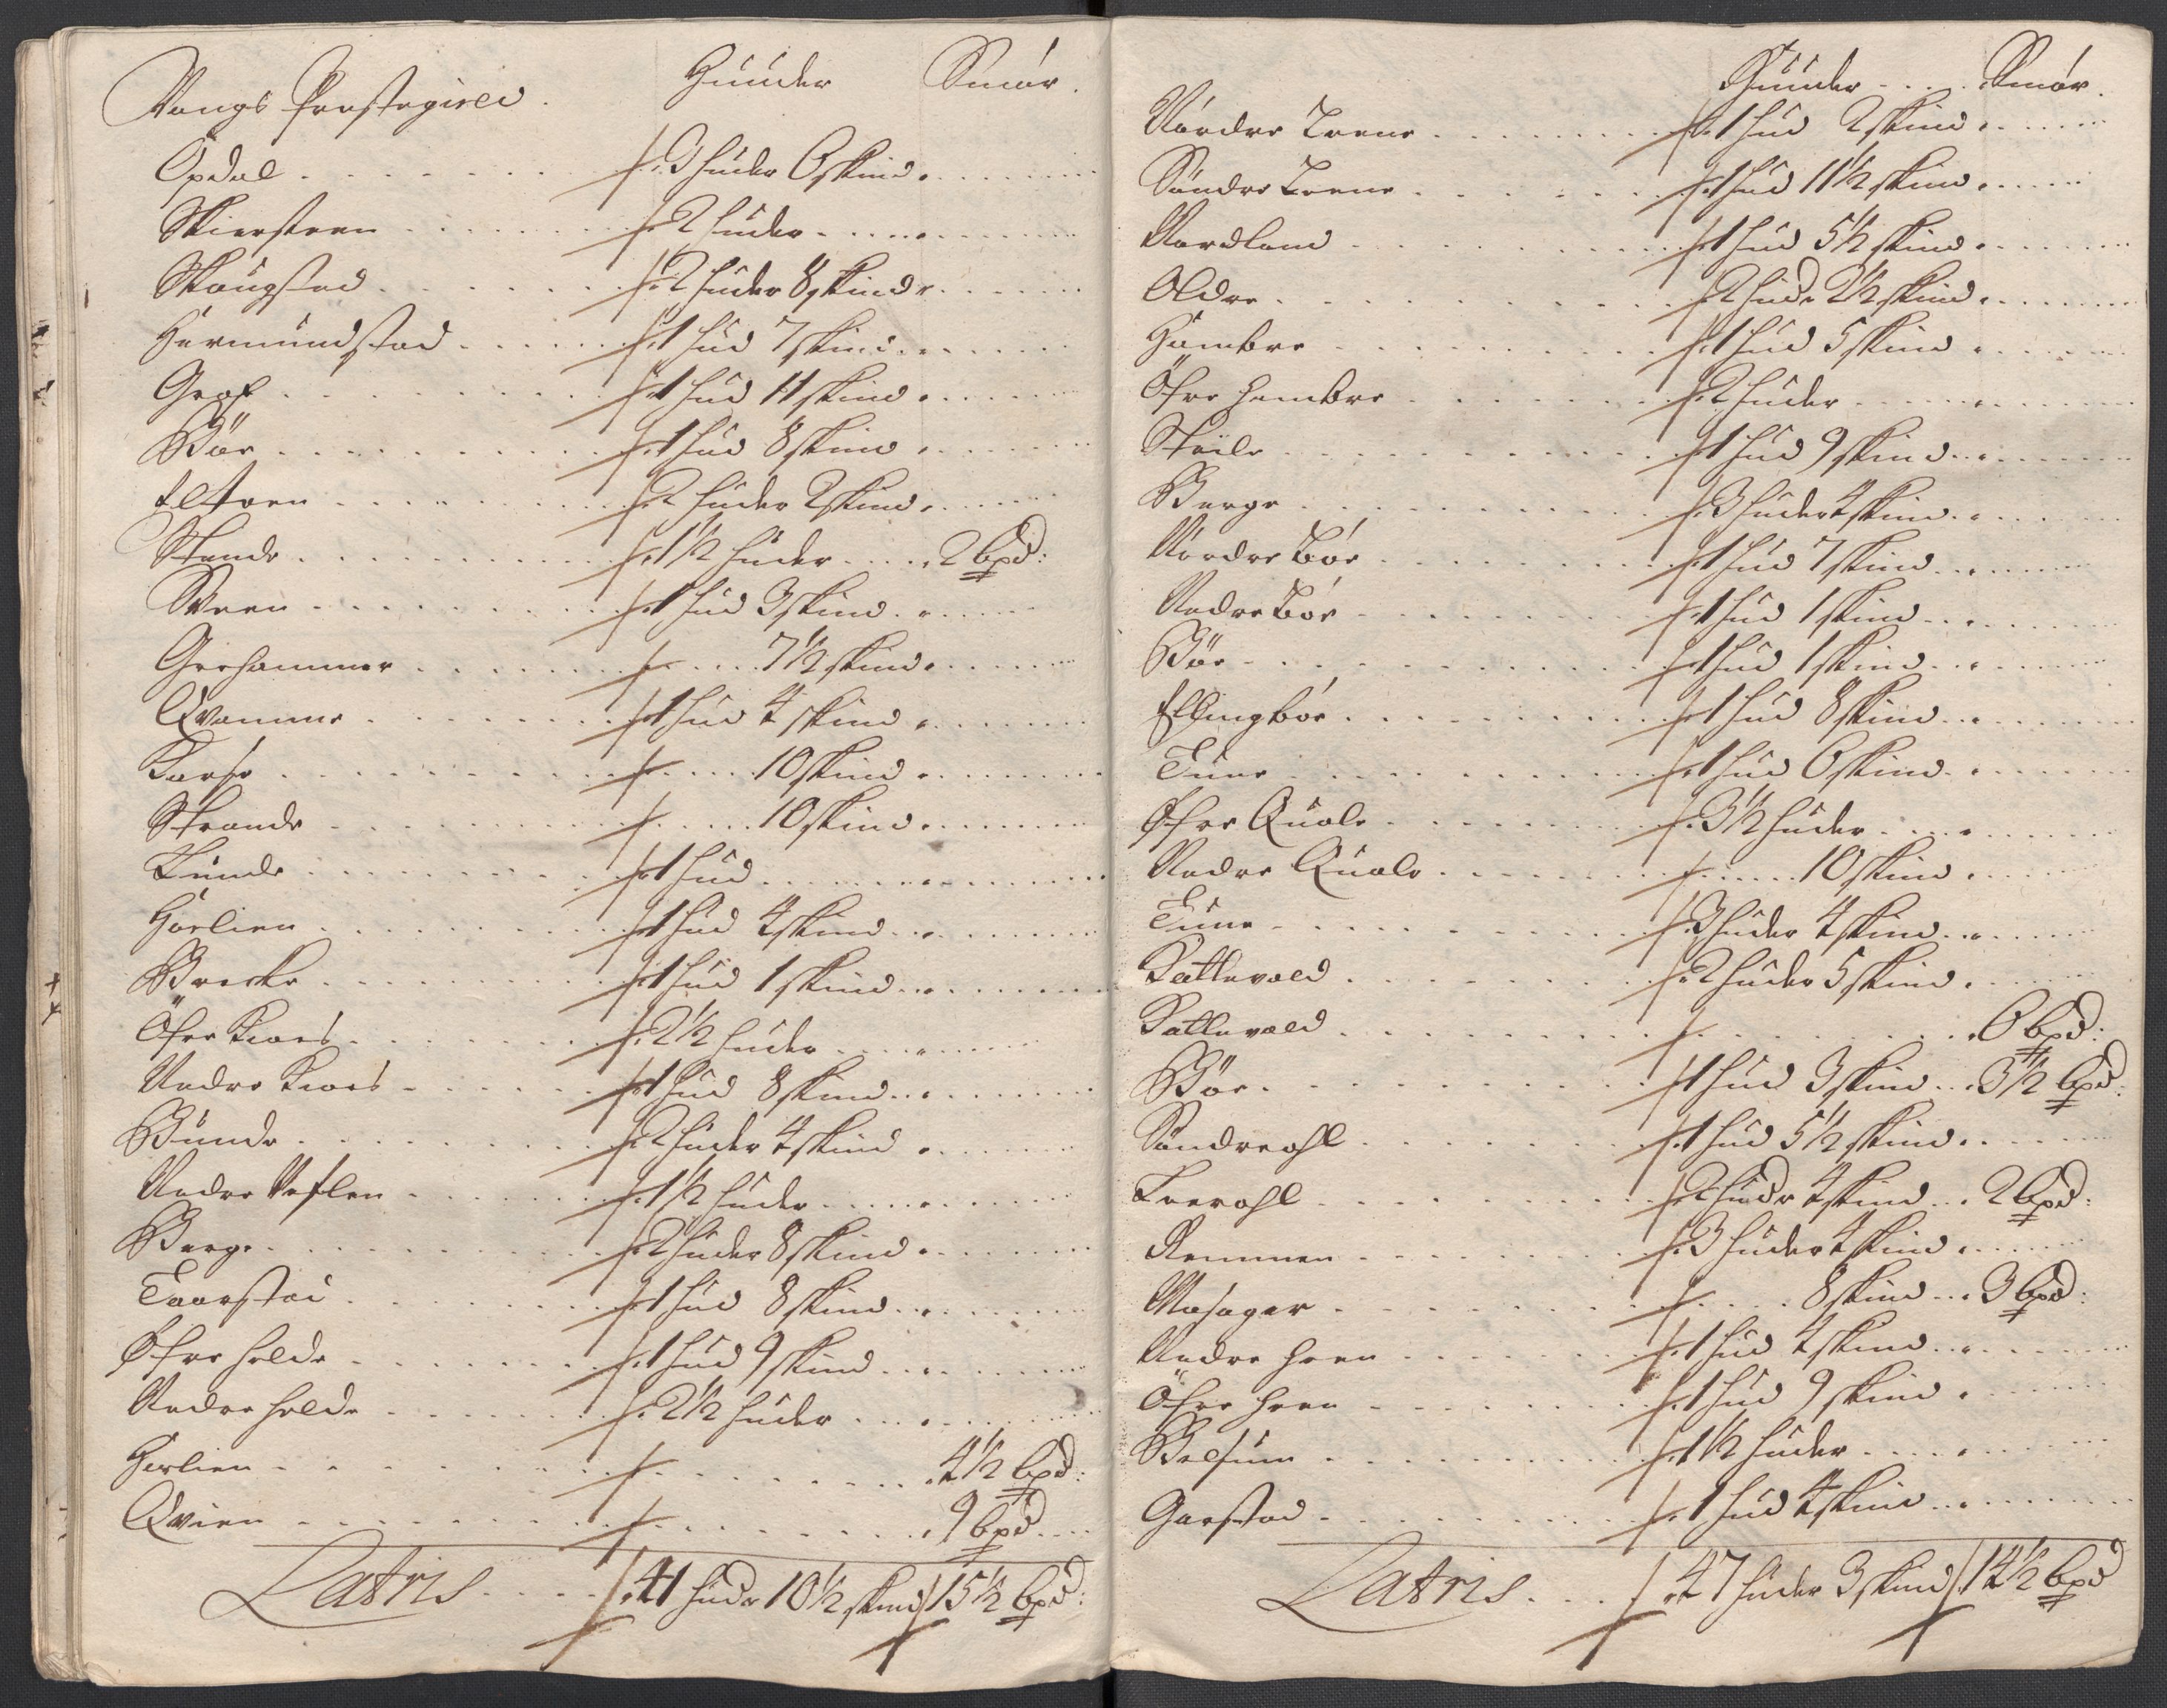 Vangs Præstegield. Huuder Smør.
Opdal 3 huder 6 skind.
Skiersteen 2 huder
Skougstad 2 huder 8 skind
Hermundstad 1 hud 7 skind
Grof 1 hud 11 skind
Bøe 1 hud 8 skind
Elltoen 2 huder 2 skind
Stende 1½ huder 2 bpd:
Sveen 1 hud 3 skind
Grehammer 7½ skind
Qvamme 1 hud 4 skind
10 skind
Strande 10 skind
Lunde 1 hud
Hørlien 1 hud 4 skind
Brecke 1 hud 1 skind
Øfre Kiøs 2½ huder
Nedre Kiøs 1 hud 8 skind
Bunde 2 huder 4 skind
Nedre 1½ huder
Berge 2 huder 8 skind
Taarstad 1 hud 8 skind
Øfre helde 1 hud 9 skind
Nedre helde 2½ huder
Hørlien 4½ bpd:
Qvien 9 bpd
Latris 41 hude 10½ skind 15½ bpd:
Huuder Smør.
Nordre Leene 1 hud 2 skind
Søndre Leene 1 hud 11½ skind
Nordland 1 hud 5½ skind
Oldre 2 hude 2½ skind
Hambre 1 hud 5 skind
Øfre Hambre 2 huder
Steile 1 hud 9 skind
Berge 3 huder 4 skind
Nordre Bøe 1 hud 7 skind
Nedre Bøe 1 hud 1 skind
Bøe 1 hud 1 skind
Ellingbøe 1 hud 8 skind
Tune 1 hud 6 skind
Øfre Quale 3½ huder
Nedre Quale 10 skind
Tune 3 huder 4 skind
Kattevold 2 huder 5 skind
Kattevold 6 bpd:
Bøe 1 hud 3 skind 3½ bpd:
Søndreøhl 1 hud 5½ skind
Leerøhl 2 hude 4 skind 2 bpd:
Remmen 3 huder 4 skind
Mosager 8 skind 3 bpd:
Nedre hæen 1 hud 4 skind
Øfre hæen 1 hud 9 skind
Belsum 1½ huder
Garstad 1 hud 4 skind
Latris 47 huder 3 skind 14½ bpd